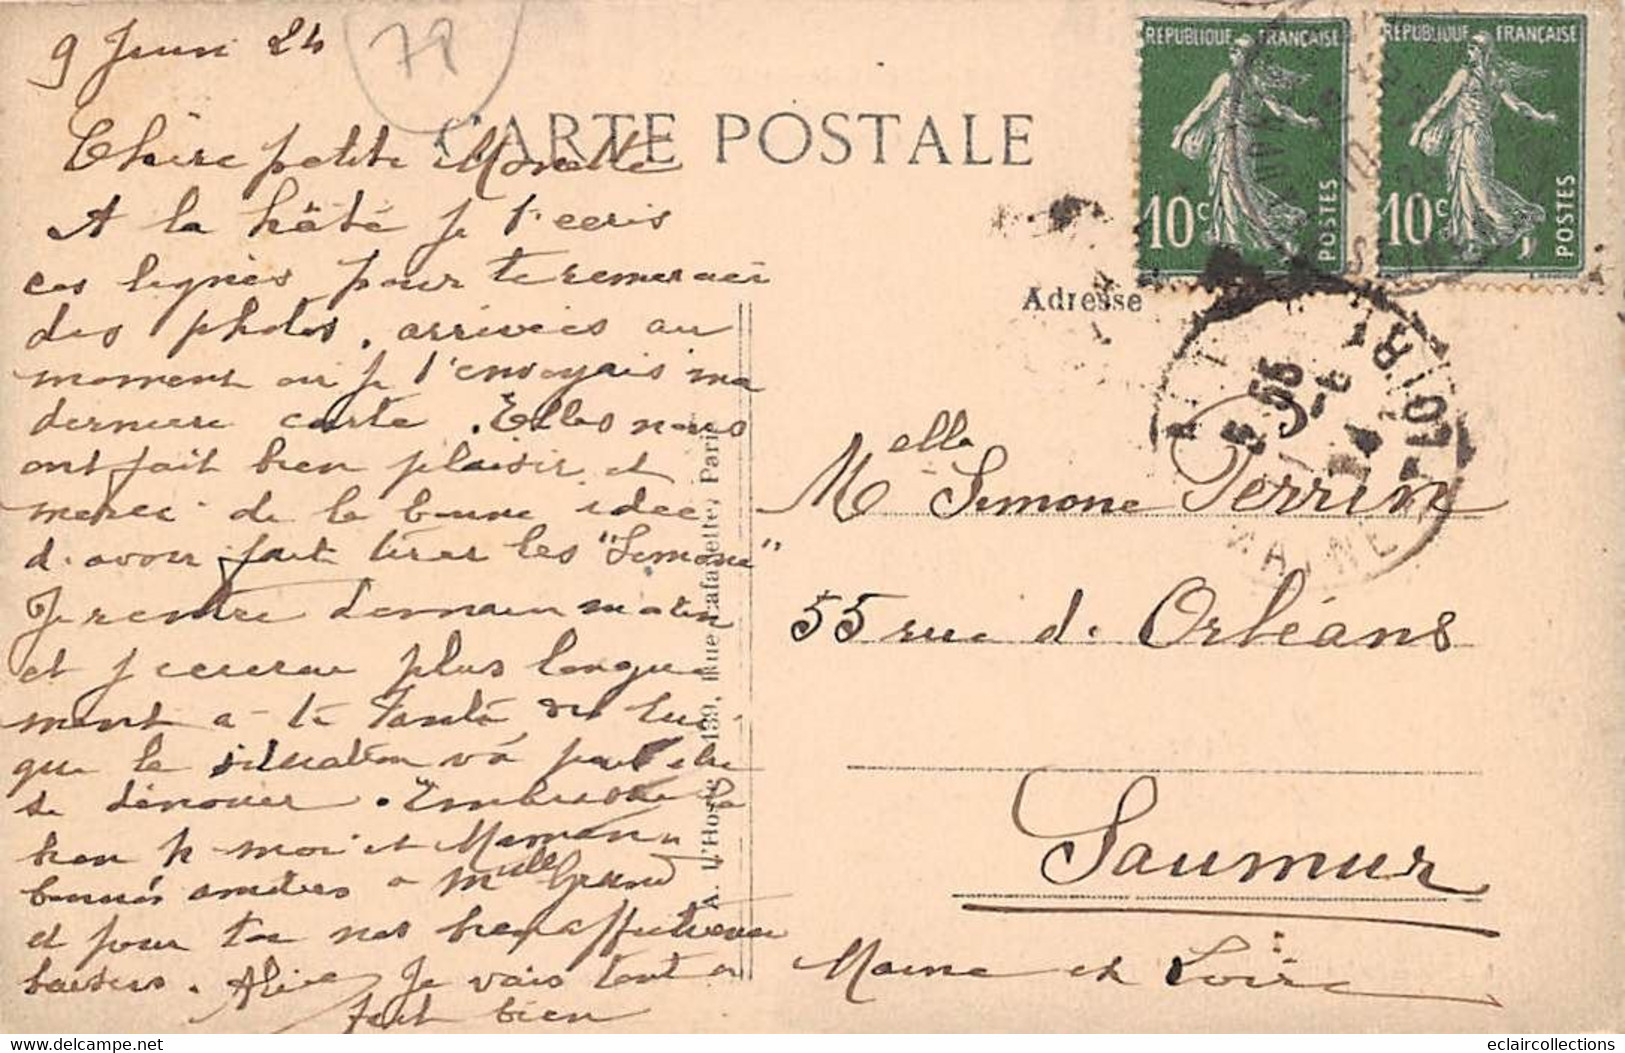 9 Juin 24
78
CARTE POSTALE
Chère petite Monette
A la hâte je t'ecris
ces lignes pour te remercier
des photos, arrivées au
moment ou je t'envoyais ma
derniere carte. Elles nous
ont fait bien plaisir et
merci de la bonne idee
d'avoir fait tirer les "Simone"
Je rentre demain matin
et j'ecrerai plus longue
ment a ta Tante
que la situation va peut etre
se dénouer. Embrasse la
bien pr moi et Maman
bonnes amitiés a Mlle Grand
et pour toi nos bien affectueux
baisers. Alice Je vais tout a
fait bien
A. L'Hoste 139, Rue Lafayette, Paris
RÉPUBLIQUE FRANÇAISE
10c
POSTES
RÉPUBLIQUE FRANÇAISE
10c
POSTES
Adresse
Melle Simone Perrin
55 rue d. Orléans
Saumur
Maine et Loire
eclaircollections @ Delcampe.net